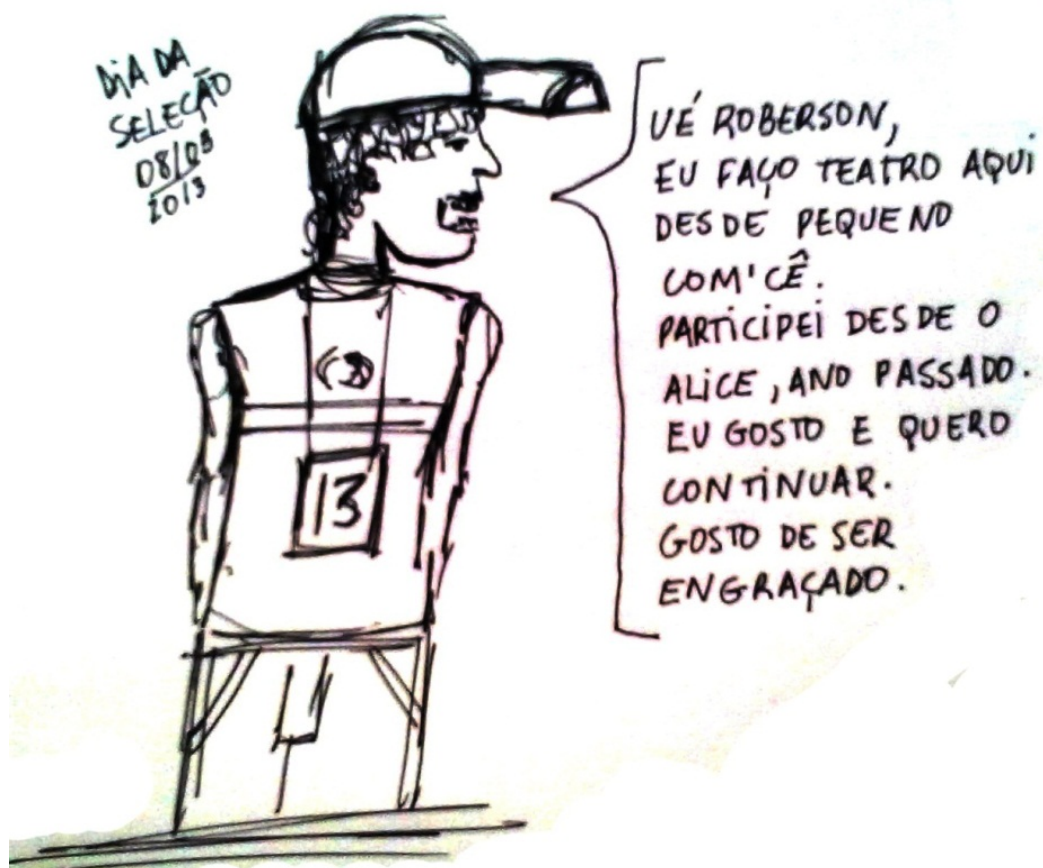 DIA DA
SELEÇÃO
08/03
2013
UÉ ROBERSON,
EU FAÇO TEATRO AQUI
DESDE PEQUENO
COM'CÊ.
PARTICIPEI DESDE O
ALICE, ANO PASSADO.
EU GOSTO E QUERO
CONTINUAR.
GOSTO DE SER
ENGRAÇADO.
13